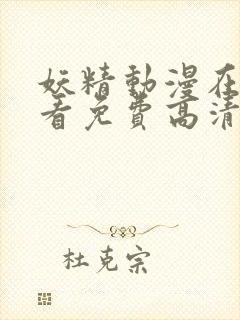 妖精動漫在
看免費高清
杜克宗